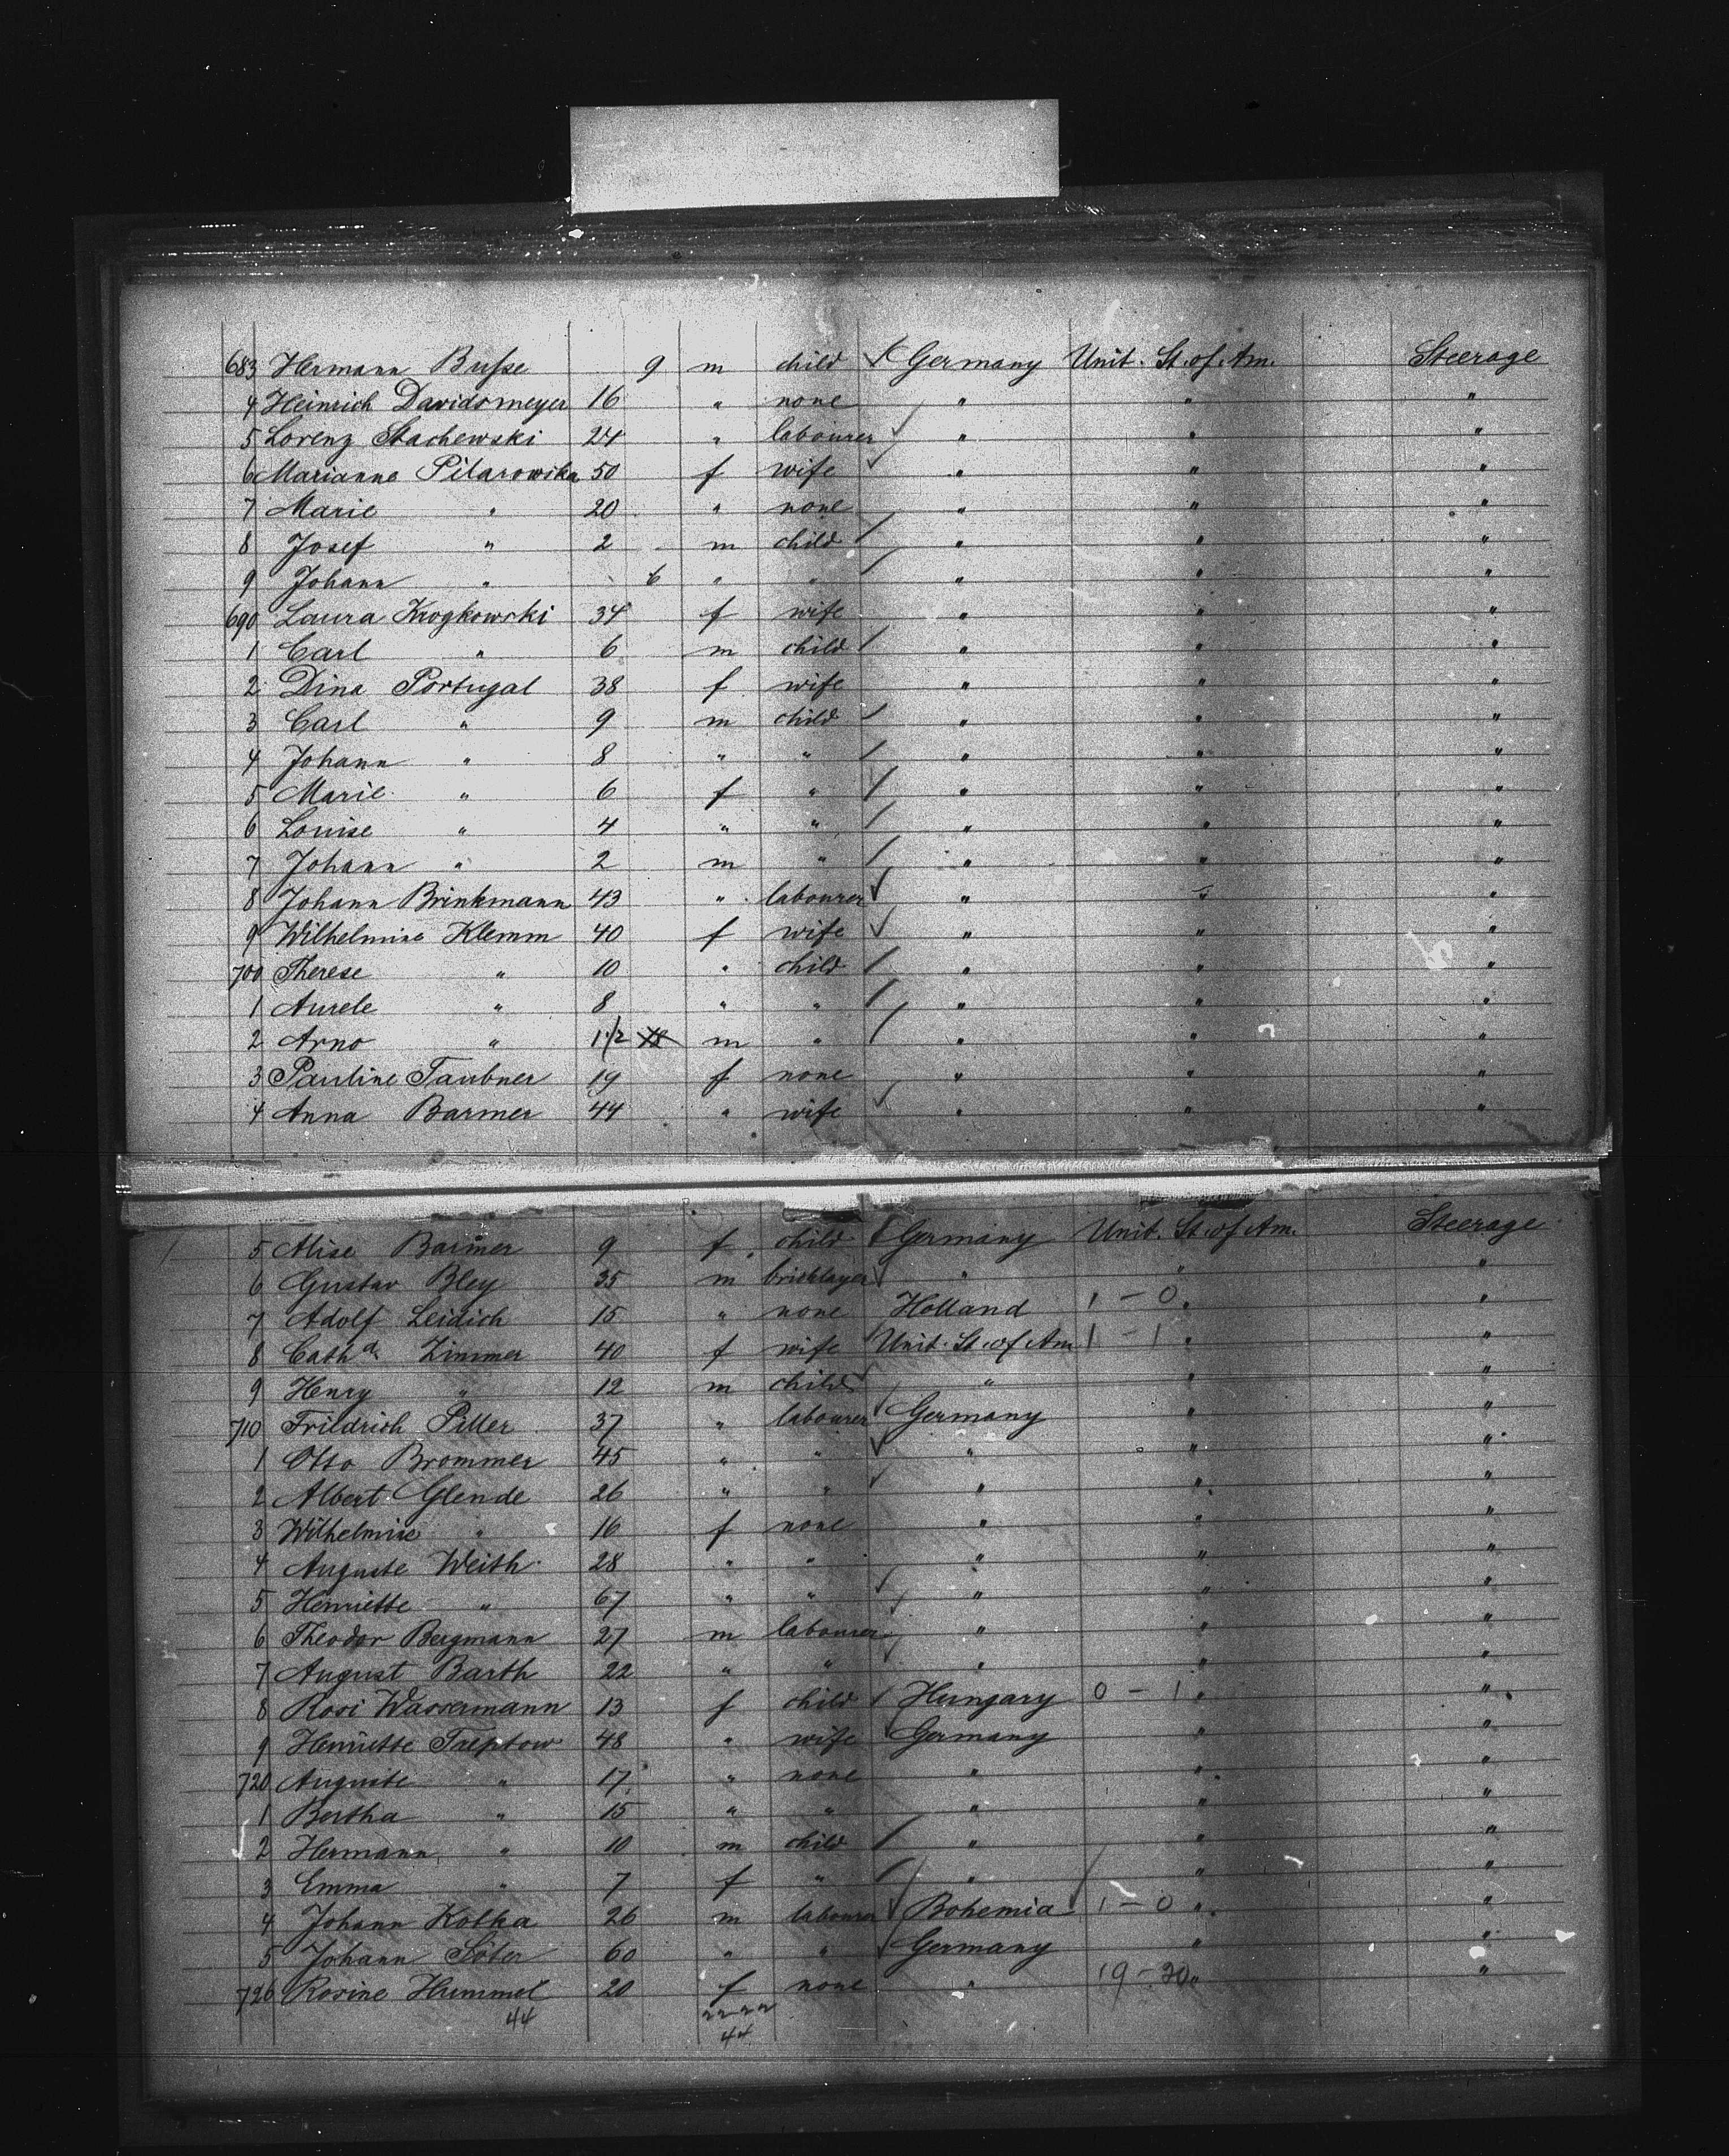 683 Hermann Buſse 9 m child Germany Unit. St. of. Am. Steerage
4 Heinrich Davidsmeyer 16 " none " " "
5 Lorenz Stachewski 24 " labourer " " "
6 Marianne Pilarowska 50 f wife " " "
7 Marie " 20 " none " " "
8 Josef " 2 m child " " "
9 Johann " 6 " " " " "
690 Laura Krogkowski 34 f wife " " "
1 Carl " 6 m child " " "
2 Dina Portugal 38 f wife " " "
3 Carl " 9 m child " " "
4 Johann " 8 " " " " "
5 Marie " 6 f " " " "
6 Louise " 4 " " " " "
7 Johann " 2 m " " " "
8 Johann Brinkmann 43 " labourer " " "
9 Wilhelmine Klemm 40 f wife " " "
700 Therese " 10 " child " " "
1 Aurele " 8 " " " " "
2 Arno " 1 1/2 m " " " "
3 Pauline Taubner 19 f none " " "
4 Anna Barmer 44 " wife " " "
5 Alise Barmer 9 f child Germany Unit. St. of. Am. Steerage
6 Gustav Bley 35 m bricklayer " " "
7 Adolf Leidich 15 " none Holland 1 - 0 " "
8 Cath a Zimmer 40 f wife Unit. St. of. Am 1 - 1 " "
9 Henry " 12 m child " " "
710 Friedrich Piller 37 " labourer Germany " "
1 Otto Brommer 45 " " " " "
2 Albert Glende 26 " " " " "
3 Wilhelmine " 16 f none " " "
4 Auguste Weith 28 " " " " "
5 Henriette " 67 " " " " "
6 Theodor Bergmann 27 m labourer " " "
7 August Barth 22 " " " " "
8 Rosi Wassermann 13 f child Hungary 0 - 1 " "
9 Henriette Treptow 48 " wife Germany " "
720 Auguste " 17 " none " " "
1 Bertha " 15 " " " " "
2 Hermann " 10 m child " " "
3 Emma " 7 f " " " "
4 Johann Kotka 26 m labourer Bohemia 1 - 0 " "
5 Johann Söter 60 " " Germany " "
726 Rosine Hummel 20 f none " 19 - 20 " "
44 22 22
44